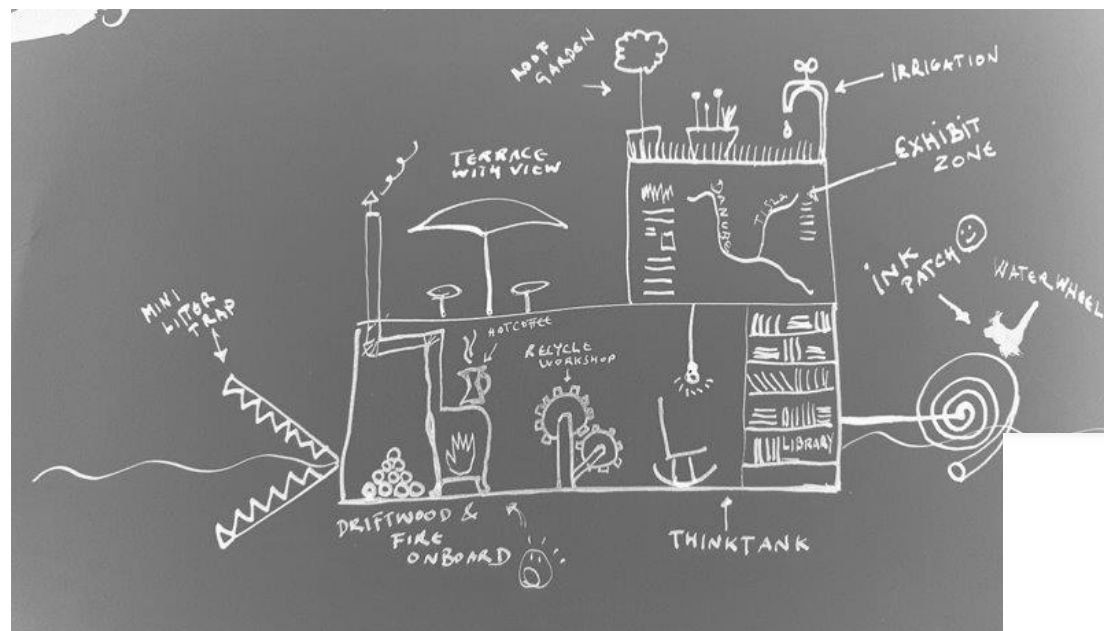 ROOF
GARDEN
IRRIGATION
EXHIBIT
ZONE
TERRACE
WITH VIEW
DANUBE
TISZA
INK
PATCH
WATERWHEEL
MINI
LITTER
TRAP
HOTCOFFEE
RECYCLE
WORKSHOP
LIBRARY
DRIFTWOOD &
FIRE
ONBOARD
THINKTANK